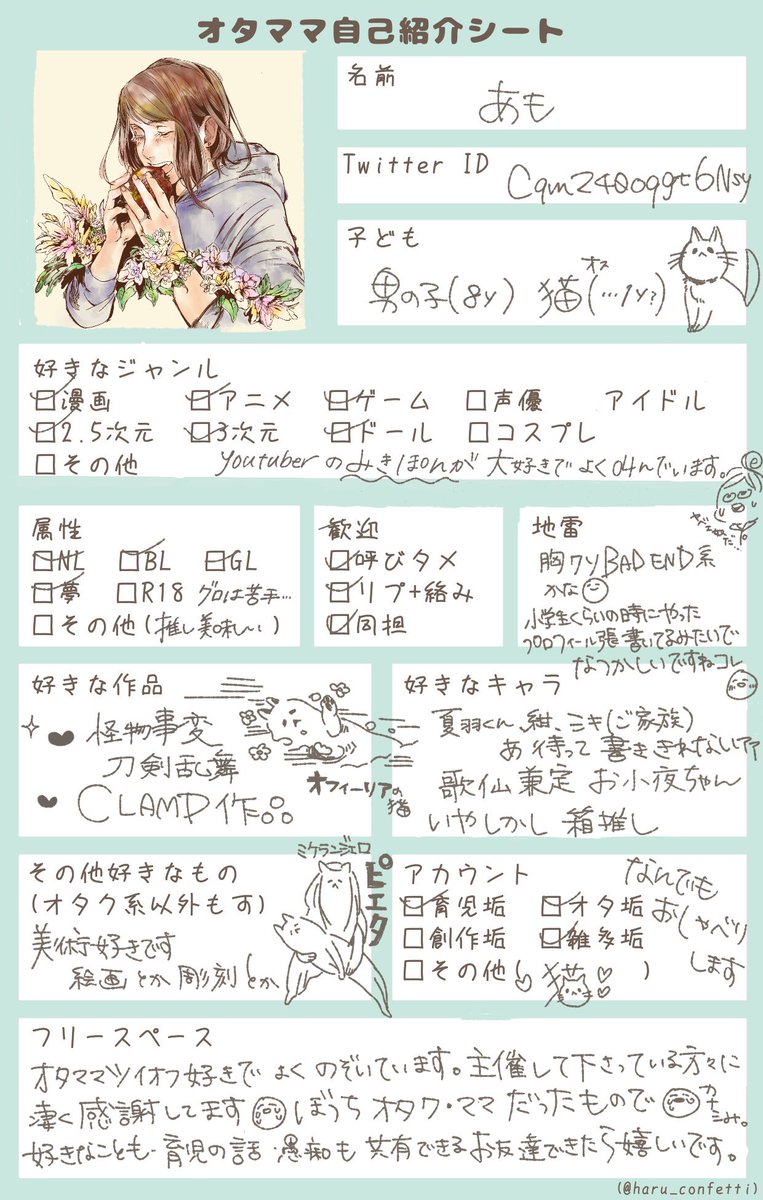 オタママ自己紹介シート
名前
あも
Twitter ID
Cqm240oqgt6Nsy
子ども
オス
男の子(8y) 猫(…1y?)
好きなジャンル
漫画 アニメ ゲーム 声優 アイドル
2.5次元 3次元 ドール コスプレ
その他 youtuberのみきぽんが大好きでよく叫んでいます。
属性
NL BL GL
夢 R18 グロは苦手…
その他(推し美味しい)
歓迎
呼びタメ
リプ+絡み
同担
地雷
胸クソBAD END系
かな
小学生くらいの時にやった
プロフィール張書いてるみたいで
なつかしいですねコレ
好きな作品
怪物事変
刀剣乱舞
CLAMP作品
オフィーリアの猫
好きなキャラ
夏羽くん、紺、ミキ(ご家族)
あ待って書ききれないアア
歌仙兼定 お小夜ちゃん
いやしかし箱推し
その他好きなもの
(オタク系以外も可)
美術好きです
絵画とか彫刻とか
ミケランジェロ
ピエタ
アカウント
育児垢 オタ垢
創作垢 雑多垢
その他(猫)
なんでも
おしゃべり
します
フリースペース
オタママツイオフ好きでよくのぞいています。主催して下さっている方々に
凄く感謝してます ぼっちオタク・ママだったもので カナシみ。
好きなことも・育児の話・愚痴も共有できるお友達できたら嬉しいです。
(@haru_confetti)